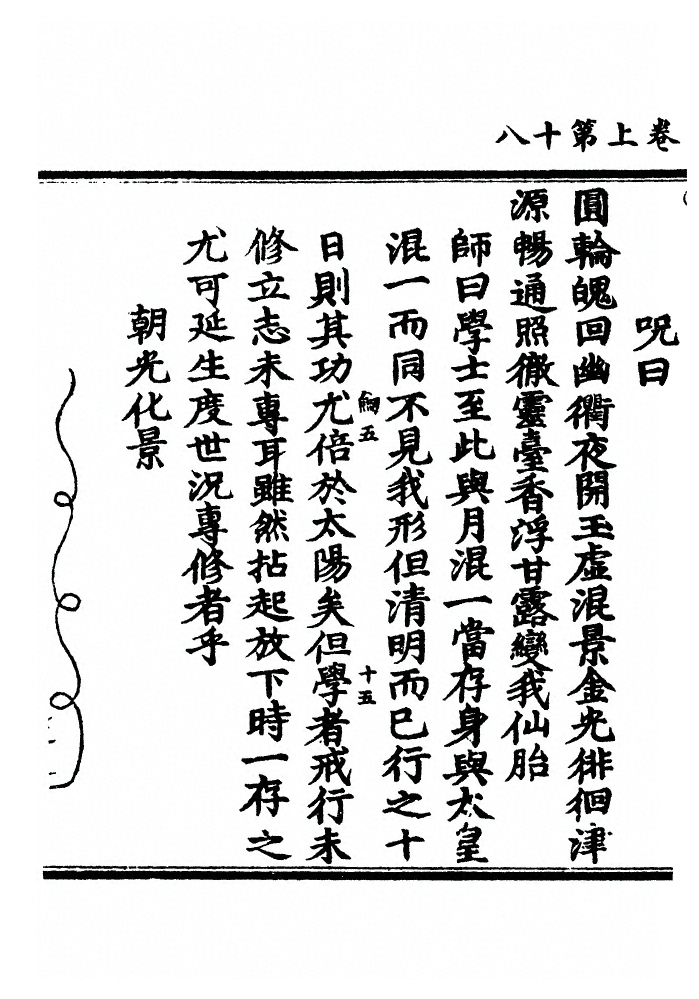 卷上第十八
咒曰
圓輪魄回幽衢夜開玉虛混景金光徘徊津
源暢通照徹靈臺香浮甘露變我仙胎
師曰學士至此與月混一當存身與太皇
混一而同不見我形但清明而已行之十
五
十五
日則其功尤倍於太陽矣但學者戒行未
修立志未專耳雖然拈起放下時一存之
尤可延生度世況專修者乎
朝光化景